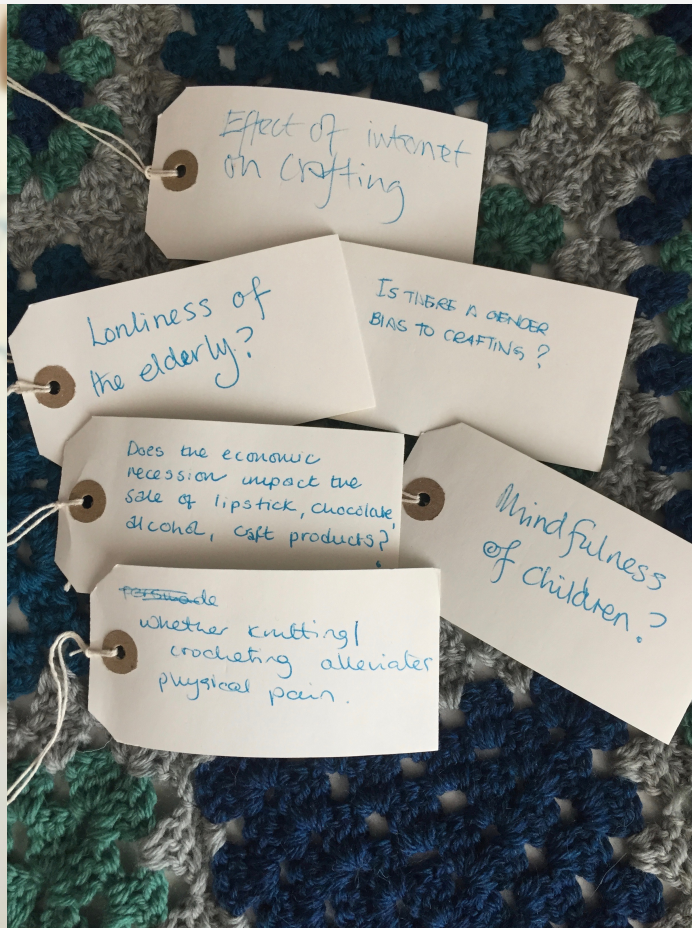 Effect of internet
on Crafting
Lonliness of
the elderly?
IS THERE A GENDER
BIAS TO CRAFTING?
Does the economic
recession impact the
sale of lipstick, chocolate,
alcohol, caft products?
Mindfulness
of children?
persuade
whether knitting/
crocheting alleviates
physical pain.